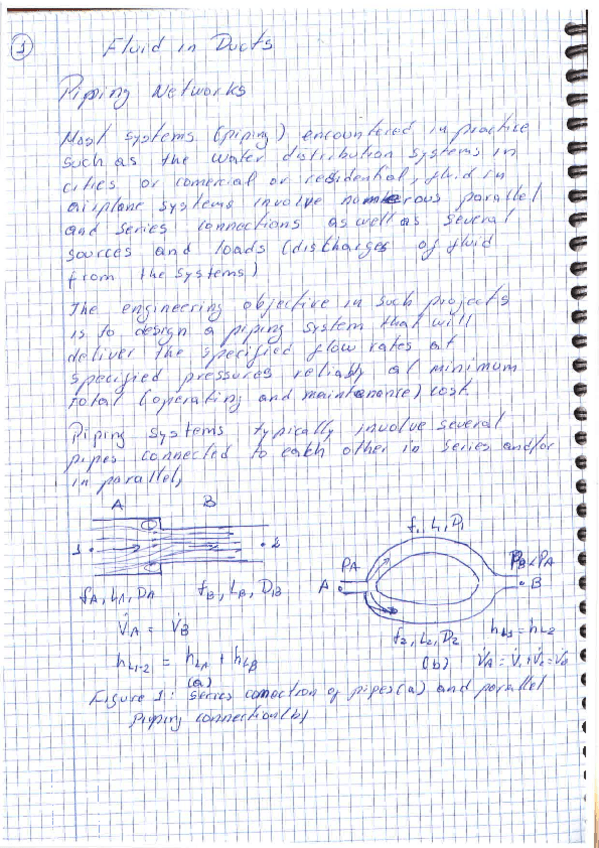 1
Fluid in Ducts
Piping Networks
Most systems (piping) encountered in practice
such as the water distribution systems in
cities or comercial or residential, fluid in
airplane systems involve numerous parallel
and series connections as well as several
sources and loads (discharges of fluid
from the systems)
The engineering objective in such projects
is to design a piping system that will
deliver the specified flow rates at
specified pressures reliably at minimum
total (operating and maintenance) cost.
Piping systems typically involve several
pipes connected to each other in series and/or
in parallel,
A B
1 2
fA, LA, DA fB, LB, DB
V̇A = V̇B
hL1-2 = hLA + hLB
(a)
f1, L1, D1
PA PB<PA
A B
f2, L2, D2 hL1 = hL2
(b) V̇A = V̇1+V̇2=V̇B
Figure 1: Series conection of pipes(a) and parallel
piping connection(b)